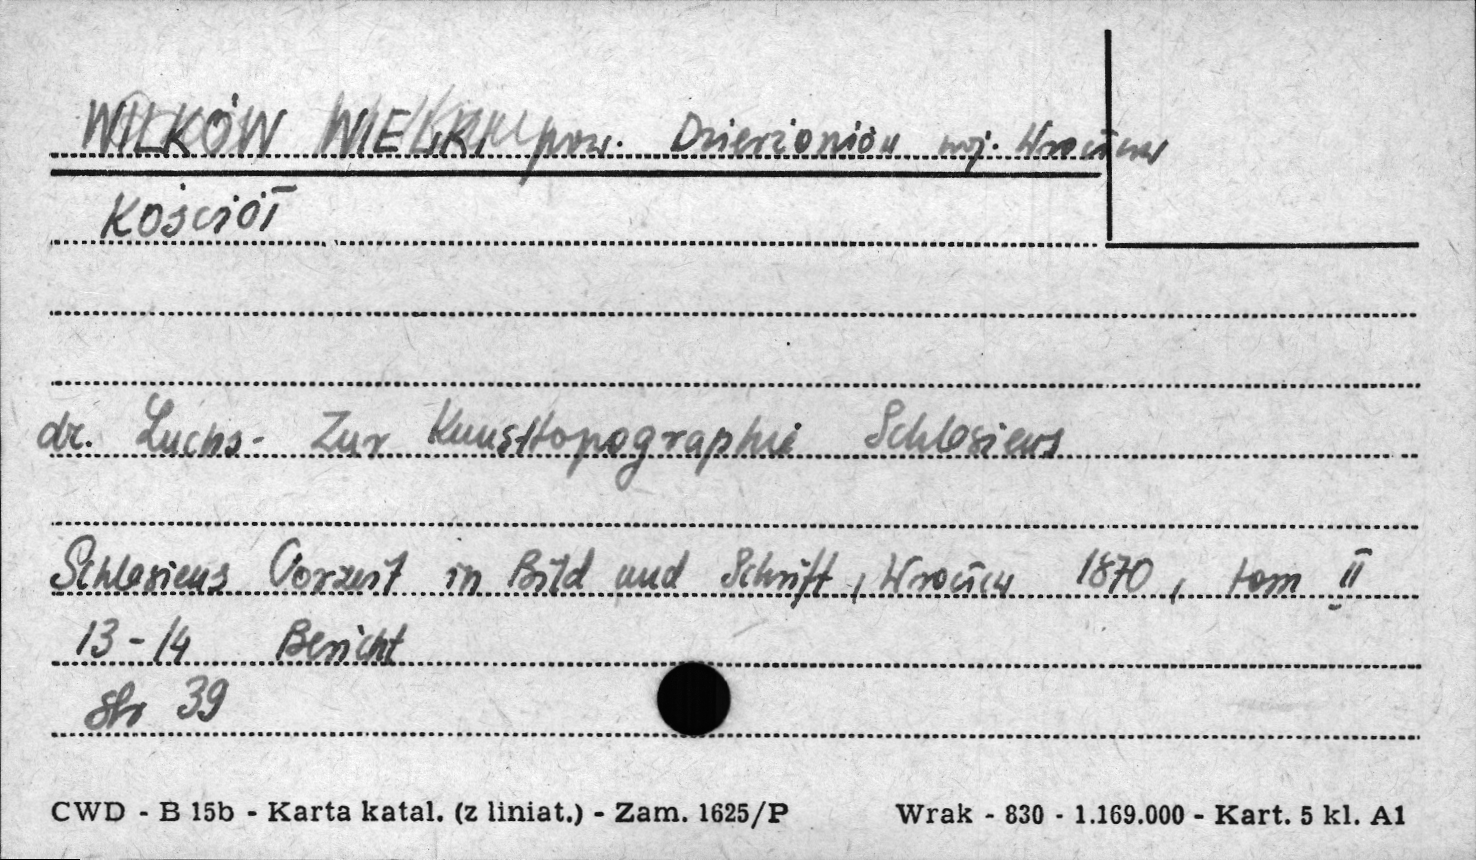 WILKÓW WIELKI pow. Dzierżoniów woj. Wrocław
Kościół
dr. Luchs - Zur Kunsttopographie Schlesiens
Schlesiens Vorzeit in Bild und Schrift, Wrocław 1870, tom II
13-14 Bericht
str 39
CWD - B 15b - Karta katal. (z liniat.) - Zam. 1625/P Wrak - 830 - 1.169.000 - Kart. 5 kl. A1